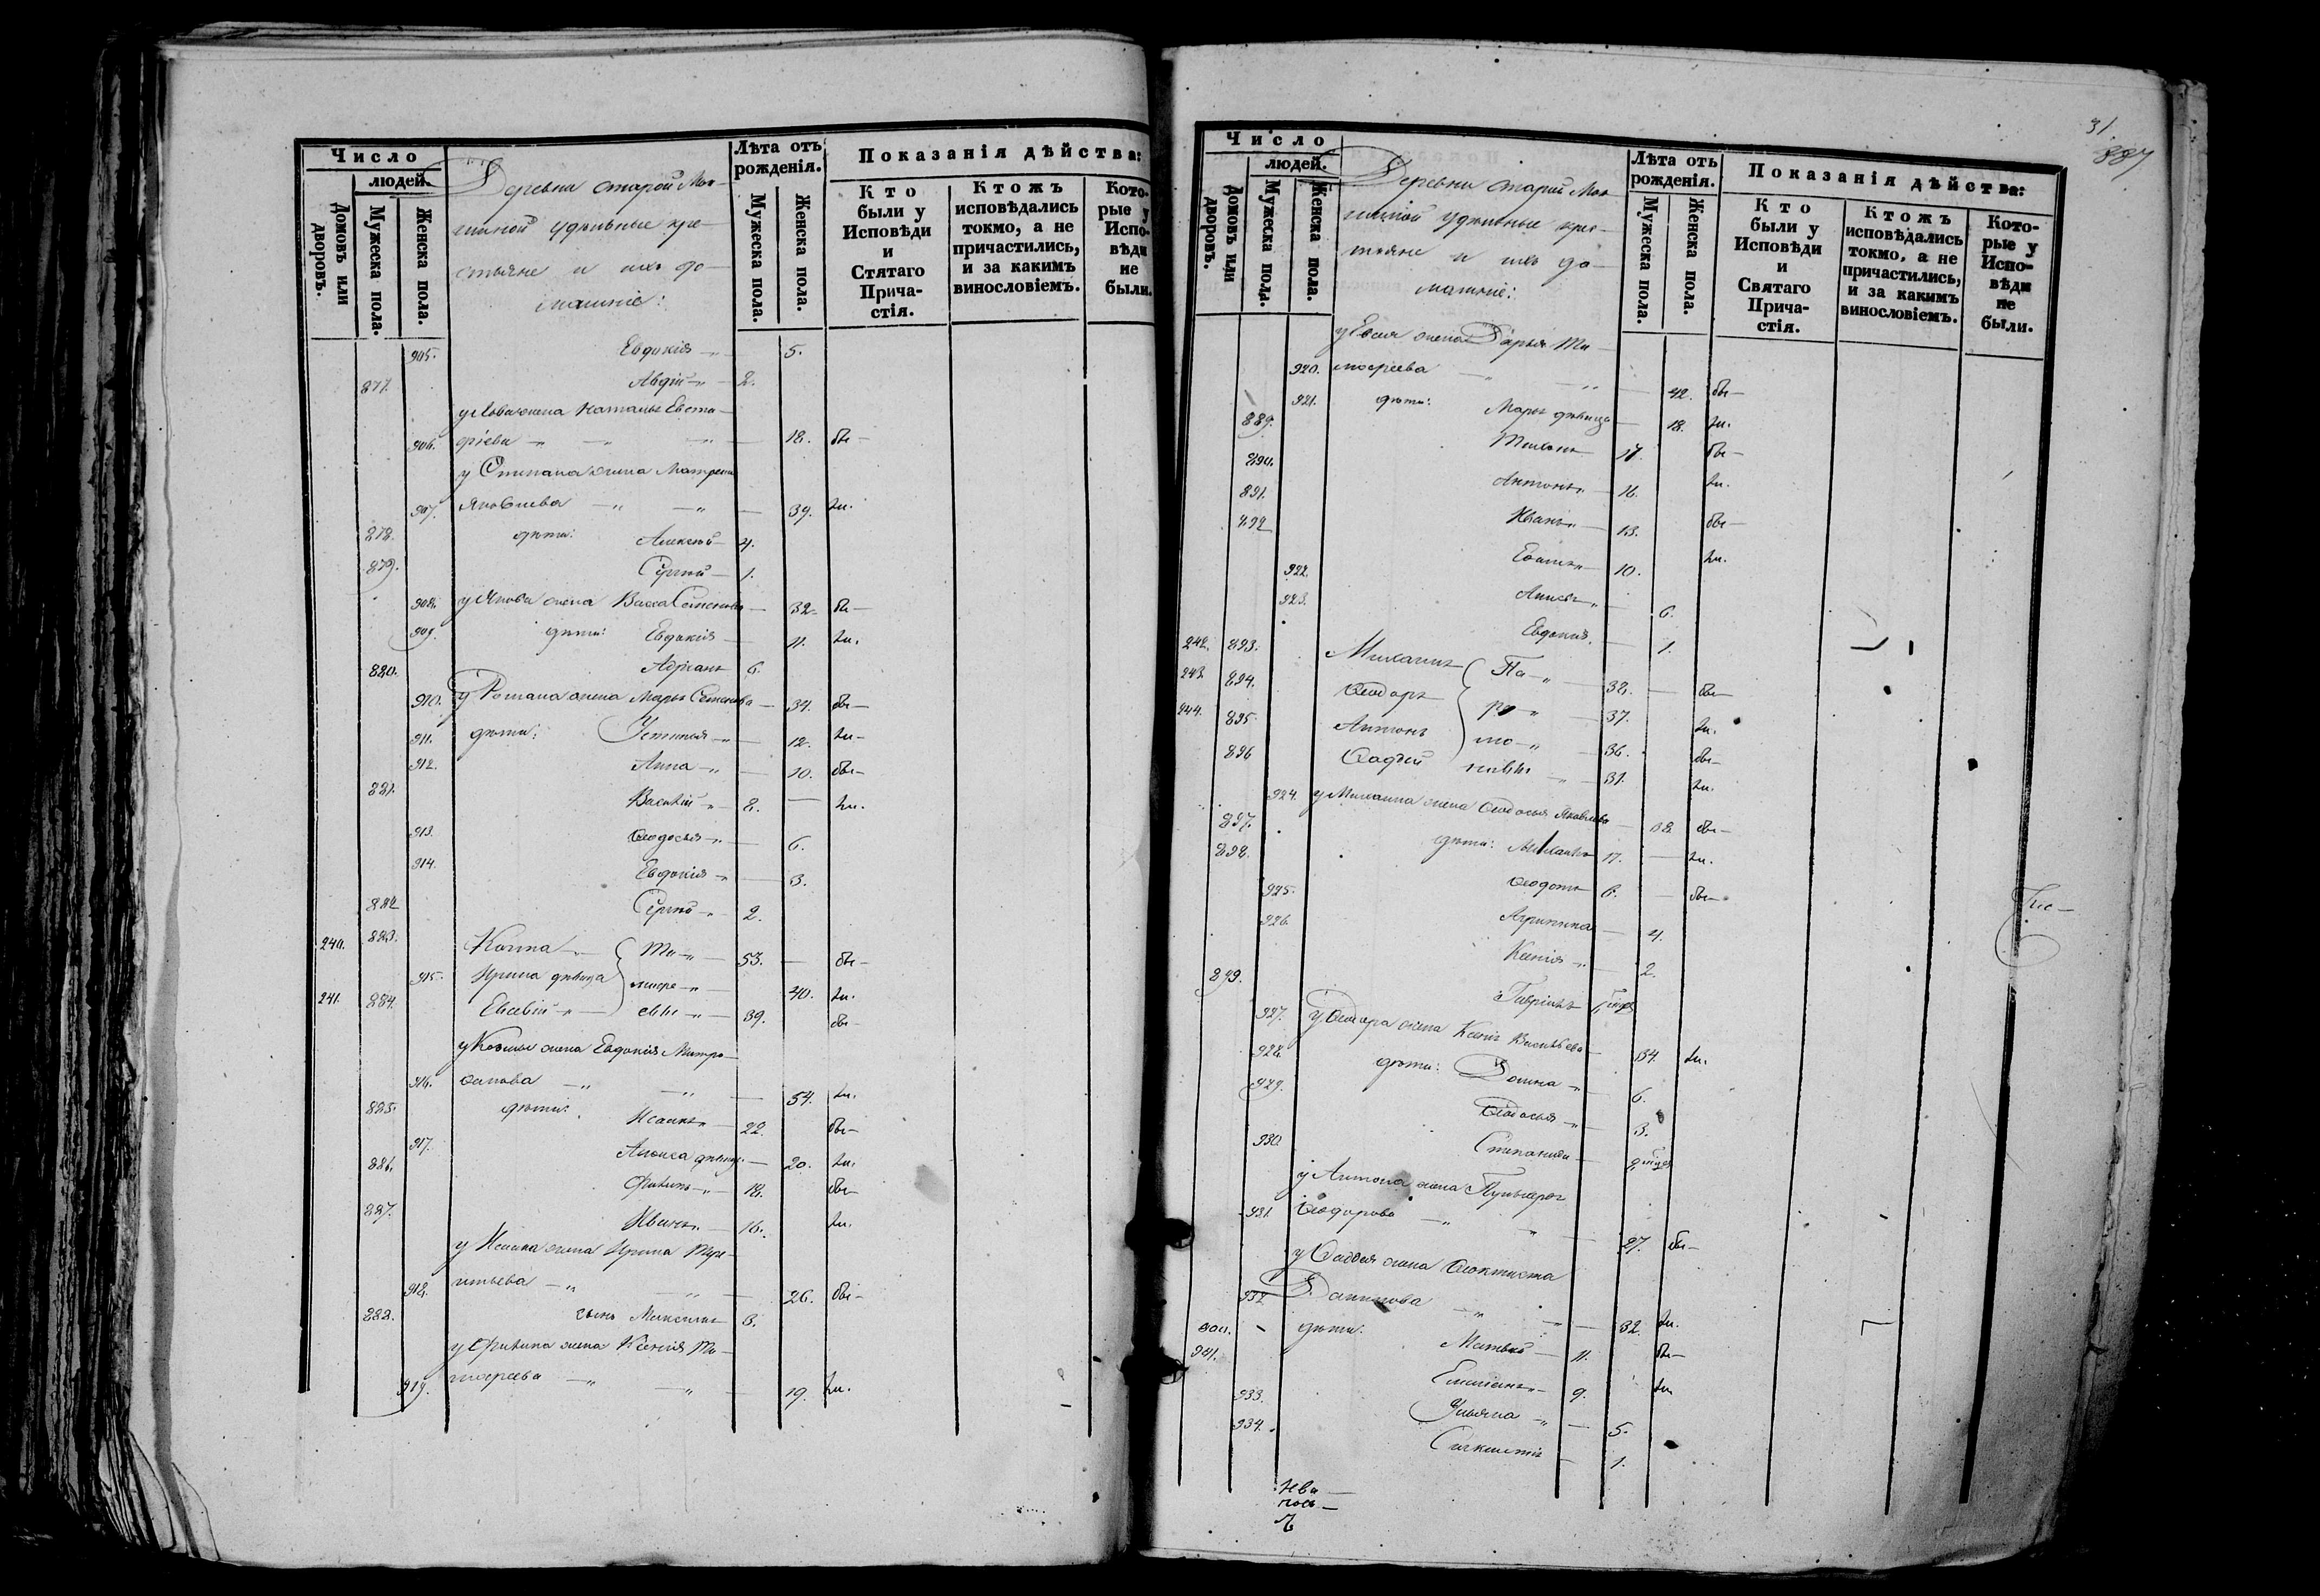 Число
людей.
Домовъ или дворовъ.
Мужеска пола.
Женска пола.
Деревни Старой
удѣльные кре-
стьяне и ихъ до-
машніе:
Лѣта отъ рожденія.
Мужеска пола.
Женска пола.
Показанія дѣйства:
Кто были у Исповѣди и Стятаго Прича-стія.
Ктожъ исповѣдались токмо, а не причастились, и за какимъ винословіемъ.
Кото-рые у Испо-вѣди не были.
905. Евдокія 5.
877. Авдій 2.
жена Наталья Евста-
906. фіева 18. бы-
у Степана жена Матрена
907. Яковлева 39. ли.
878. дѣти: Алексѣй 4.
879. Сергѣй 1.
908. у Якова жена Васса Семенова 32. бы-
909. дѣти: Евдокія 11. ли.
880. Адріанъ 6.
910. у Романа жена Марья Семенова 34. бы-
911. дѣти: Устинья 12. ли-
912. Анна 10. бы-
881. Василій 8. ли.
913. Ѳеодосья 6.
914. Евдокія 3.
882 Сергѣй 2.
240. 883. Козма Ти- 53. бы-
915. Ирина дѣвица мофе- 40. ли.
241. 884. Евсевій евы 39. бы-
у Козмы жена Евдокія Митро-
916. фанова 54. ли.
885. дѣти: Исаакъ 22. бы-
917. дѣвица 20. ли.
886. Филипъ 18. бы-
887. Иванъ 16. ли.
у Исаака жена Ирина Тере-
918. нтьева 26. бы-
888. сынъ Максимъ 3.
у Филипа жена Ксенія Ти-
919. мофеева 19. ли.
31.
887
Число
людей.
Домовъ или дворовъ.
Мужеска пола.
Женска пола.
Деревни Старой
удѣльные крес-
тьяне и ихъ до-
машніе:
Лѣта отъ рожденія.
Мужеска пола.
Женска пола.
Показанія дѣйства:
Кто были у Исповѣди и Святаго Прича-стія.
Ктожъ исповѣдались токмо, а не причастились, и за какимъ винословіемъ.
Кото-рые у Испо-вѣди не были.
жена Дарья Ти-
920. мофеева 42. бы-
921. дѣти: Марья дѣвица 18. ли.
889. Тихонъ 17. бы-
890. Антонъ 16. ли.
891. Иванъ 13. бы-
892 10. ли.
922. Анисья 6.
923. Евдокія 1.
242. 893. Михаилъ Па- 38. бы-
243. 894. Ѳеодоръ р 37. ли.
244. 895. Антонъ мо- 36. бы-
896 Ѳадѣй новы 31. ли.
924. у Михаила жена Ѳеодосья Яковлева 38 бы-
897. дѣти: Михаилъ 17. ли.
898. Ѳеодотъ 6. бы-
925. Агрипина 4.
926. Ксенія 2.
899. Гавріилъ
927. у Ѳеодора жена Ксенія Васильева 34. ли.
928. дѣти: Домна 6.
929. Ѳеодосья 3.
930. Степанида
у Антона жена Пульхерія
931. Ѳеодорова 27. бы-
у Ѳаддея жена Ѳеоктиста
932 Данилова 32. ли.
900. дѣти: Матвѣй 11. бы-
901. Емиліанъ 9. ли
933. Ульяна 5.
934. 1.